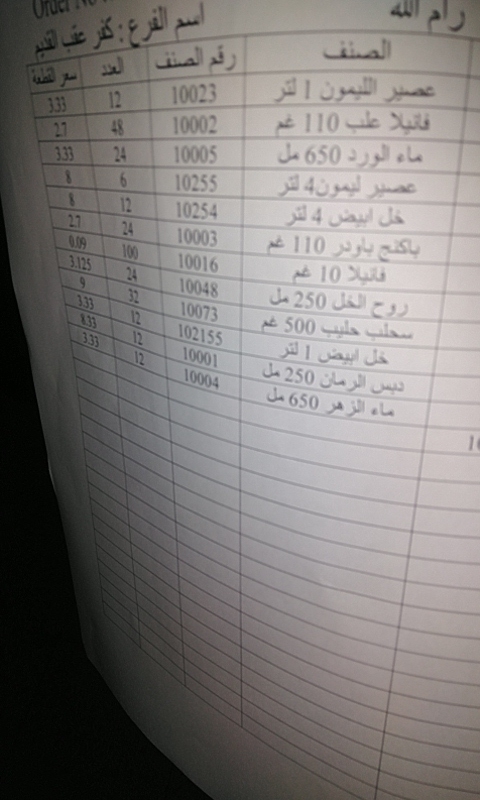 رام الله
Order No
اسم الفرع : كفر عقب القديم
الصنف رقم الصنف العدد سعر القطعة
عصير الليمون 1 لتر 10023 12 3.33
فانيلا علب 110 غم 10002 48 2.7
ماء الورد 650 مل 10005 24 3.33
عصير ليمون4 لتر 10255 6 8
خل ابيض 4 لتر 10254 12 8
باكنج باودر 110 غم 10003 24 2.7
فانيلا 10 غم 10016 100 0.09
روح الخل 250 مل 10048 24 3.125
سحلب حليب 500 غم 10073 32 9
خل ابيض 1 لتر 102155 12 3.33
دبس الرمان 250 مل 10001 12 8.33
ماء الزهر 650 مل 10004 12 3.33